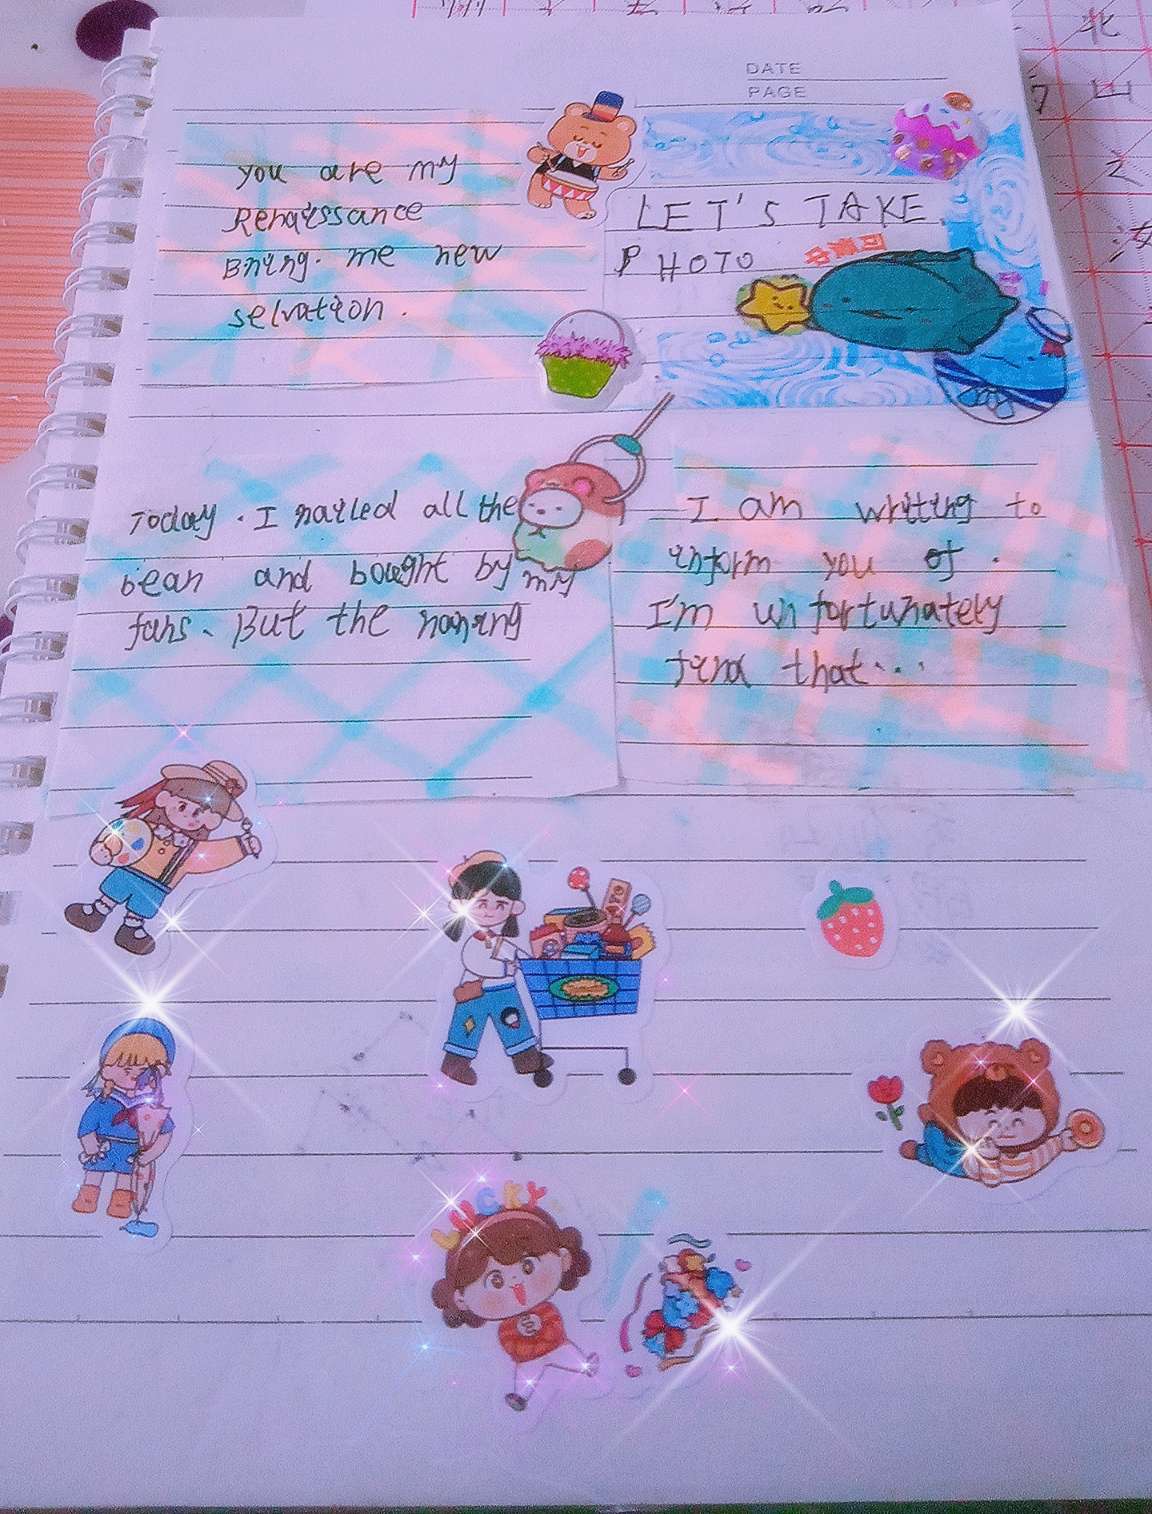 DATE
PAGE
You are my
Renaissance
Bring. me new
selvation.
LET'S TAKE
PHOTO
Today. I nailed all the
bean and bought by my
fans. But the naning
I am writting to
inform you of.
I'm unfortunately
find that...
LUCKY